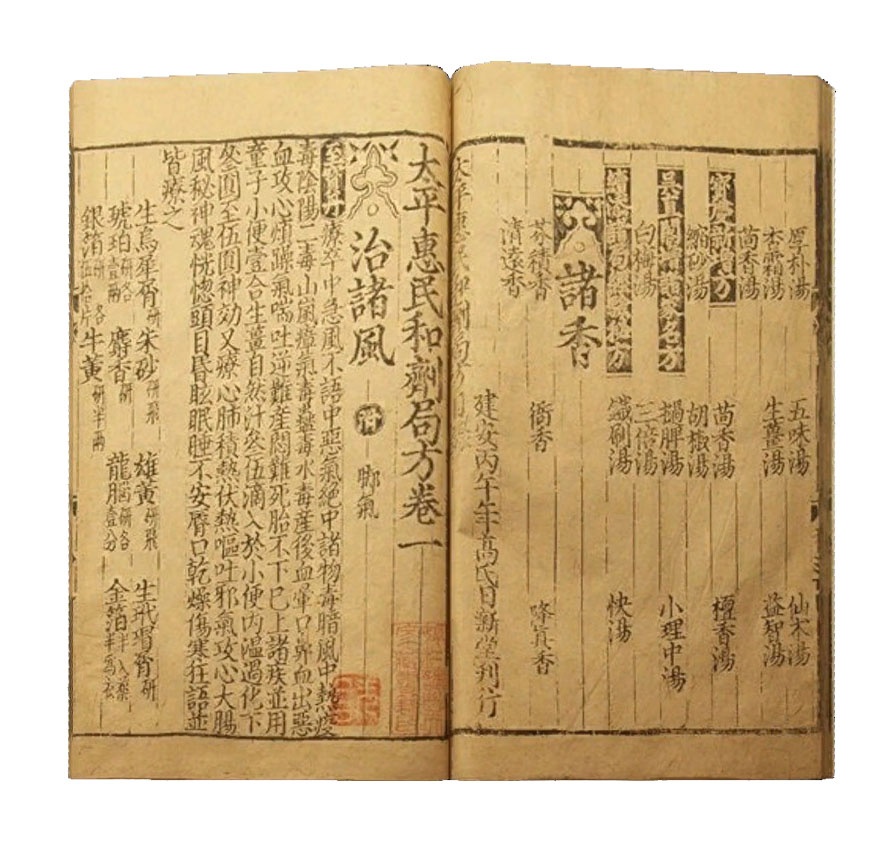 厚朴湯 五味湯 仙朮湯
杏霜湯 生薑湯 益智湯
茴香湯
寶慶新增方 茴香湯 檀香湯
縮砂湯 胡椒湯
吳直閣增諸家名方 搗脾湯 小理中湯
白梅湯 三倍湯
續添諸局經驗秘方 鐵刷湯 快湯
諸香
芬積香 衙香 降真香
清遠香
建安丙午年高氏日新堂刊行
太平惠民和劑局方目錄
太平惠民和劑局方卷一
治諸風 附 脚氣
至寶丹 療卒中急風不語中惡氣絕中諸物毒暗風中熱疫
毒陰陽二毒山嵐瘴氣毒蠱毒水毒產後血暈口鼻血出惡
血攻心煩躁氣喘吐逆難產悶難死胎不下已上諸疾並用
童子小便壹合生薑自然汁叁伍滴入於小便内温過化下
叁圓至伍圓神効又療心肺積熱伏熱嘔吐邪氣攻心大腸
風秘神魂恍惚頭目昏眩眠睡不安脣口乾燥傷寒狂語並
皆療之
生烏犀屑研 朱砂研飛 雄黃研飛 生玳瑁屑研
琥珀研各壹兩 麝香研 龍腦研各壹分 金箔半入藥半為衣
銀箔研各伍拾片 牛黃研半兩